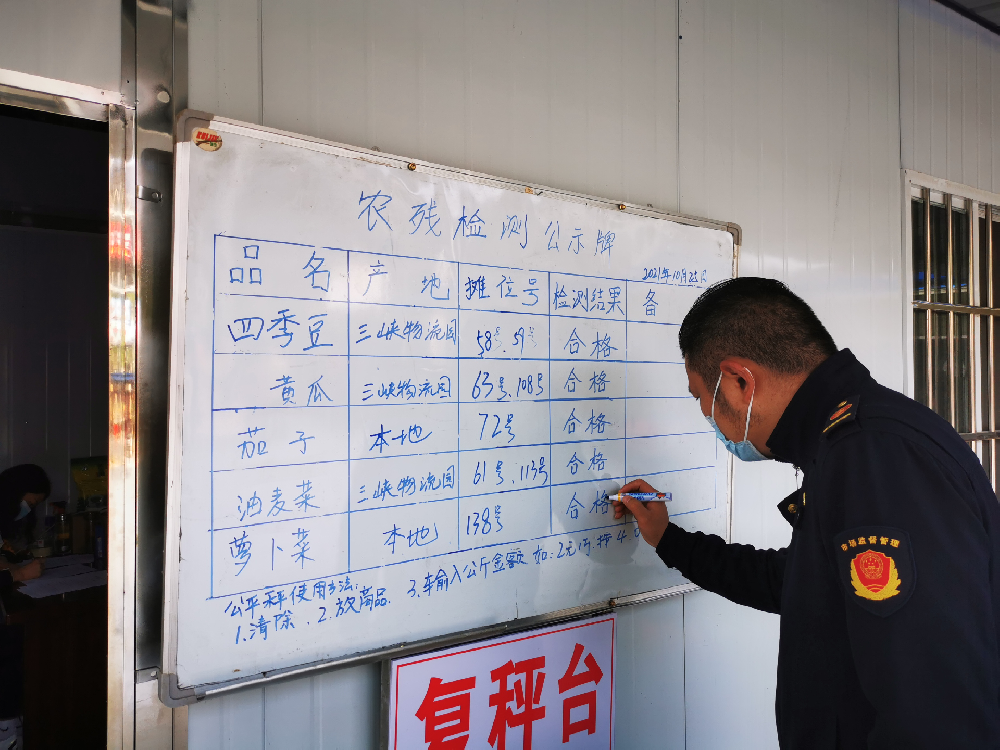 农残检测公示牌
2021年10月25日
品名 产地 摊位号 检测结果 备
四季豆 三峡物流园 58号、59号 合格
黄瓜 三峡物流园 63号、108号 合格
茄子 本地 72号 合格
油麦菜 三峡物流园 61号、113号 合格
萝卜菜 本地 138号 合格
公平秤使用方法:
1.清除、2.放商品、3.输入公斤金额 如:2元1斤.按4
复秤台
市场监督管理